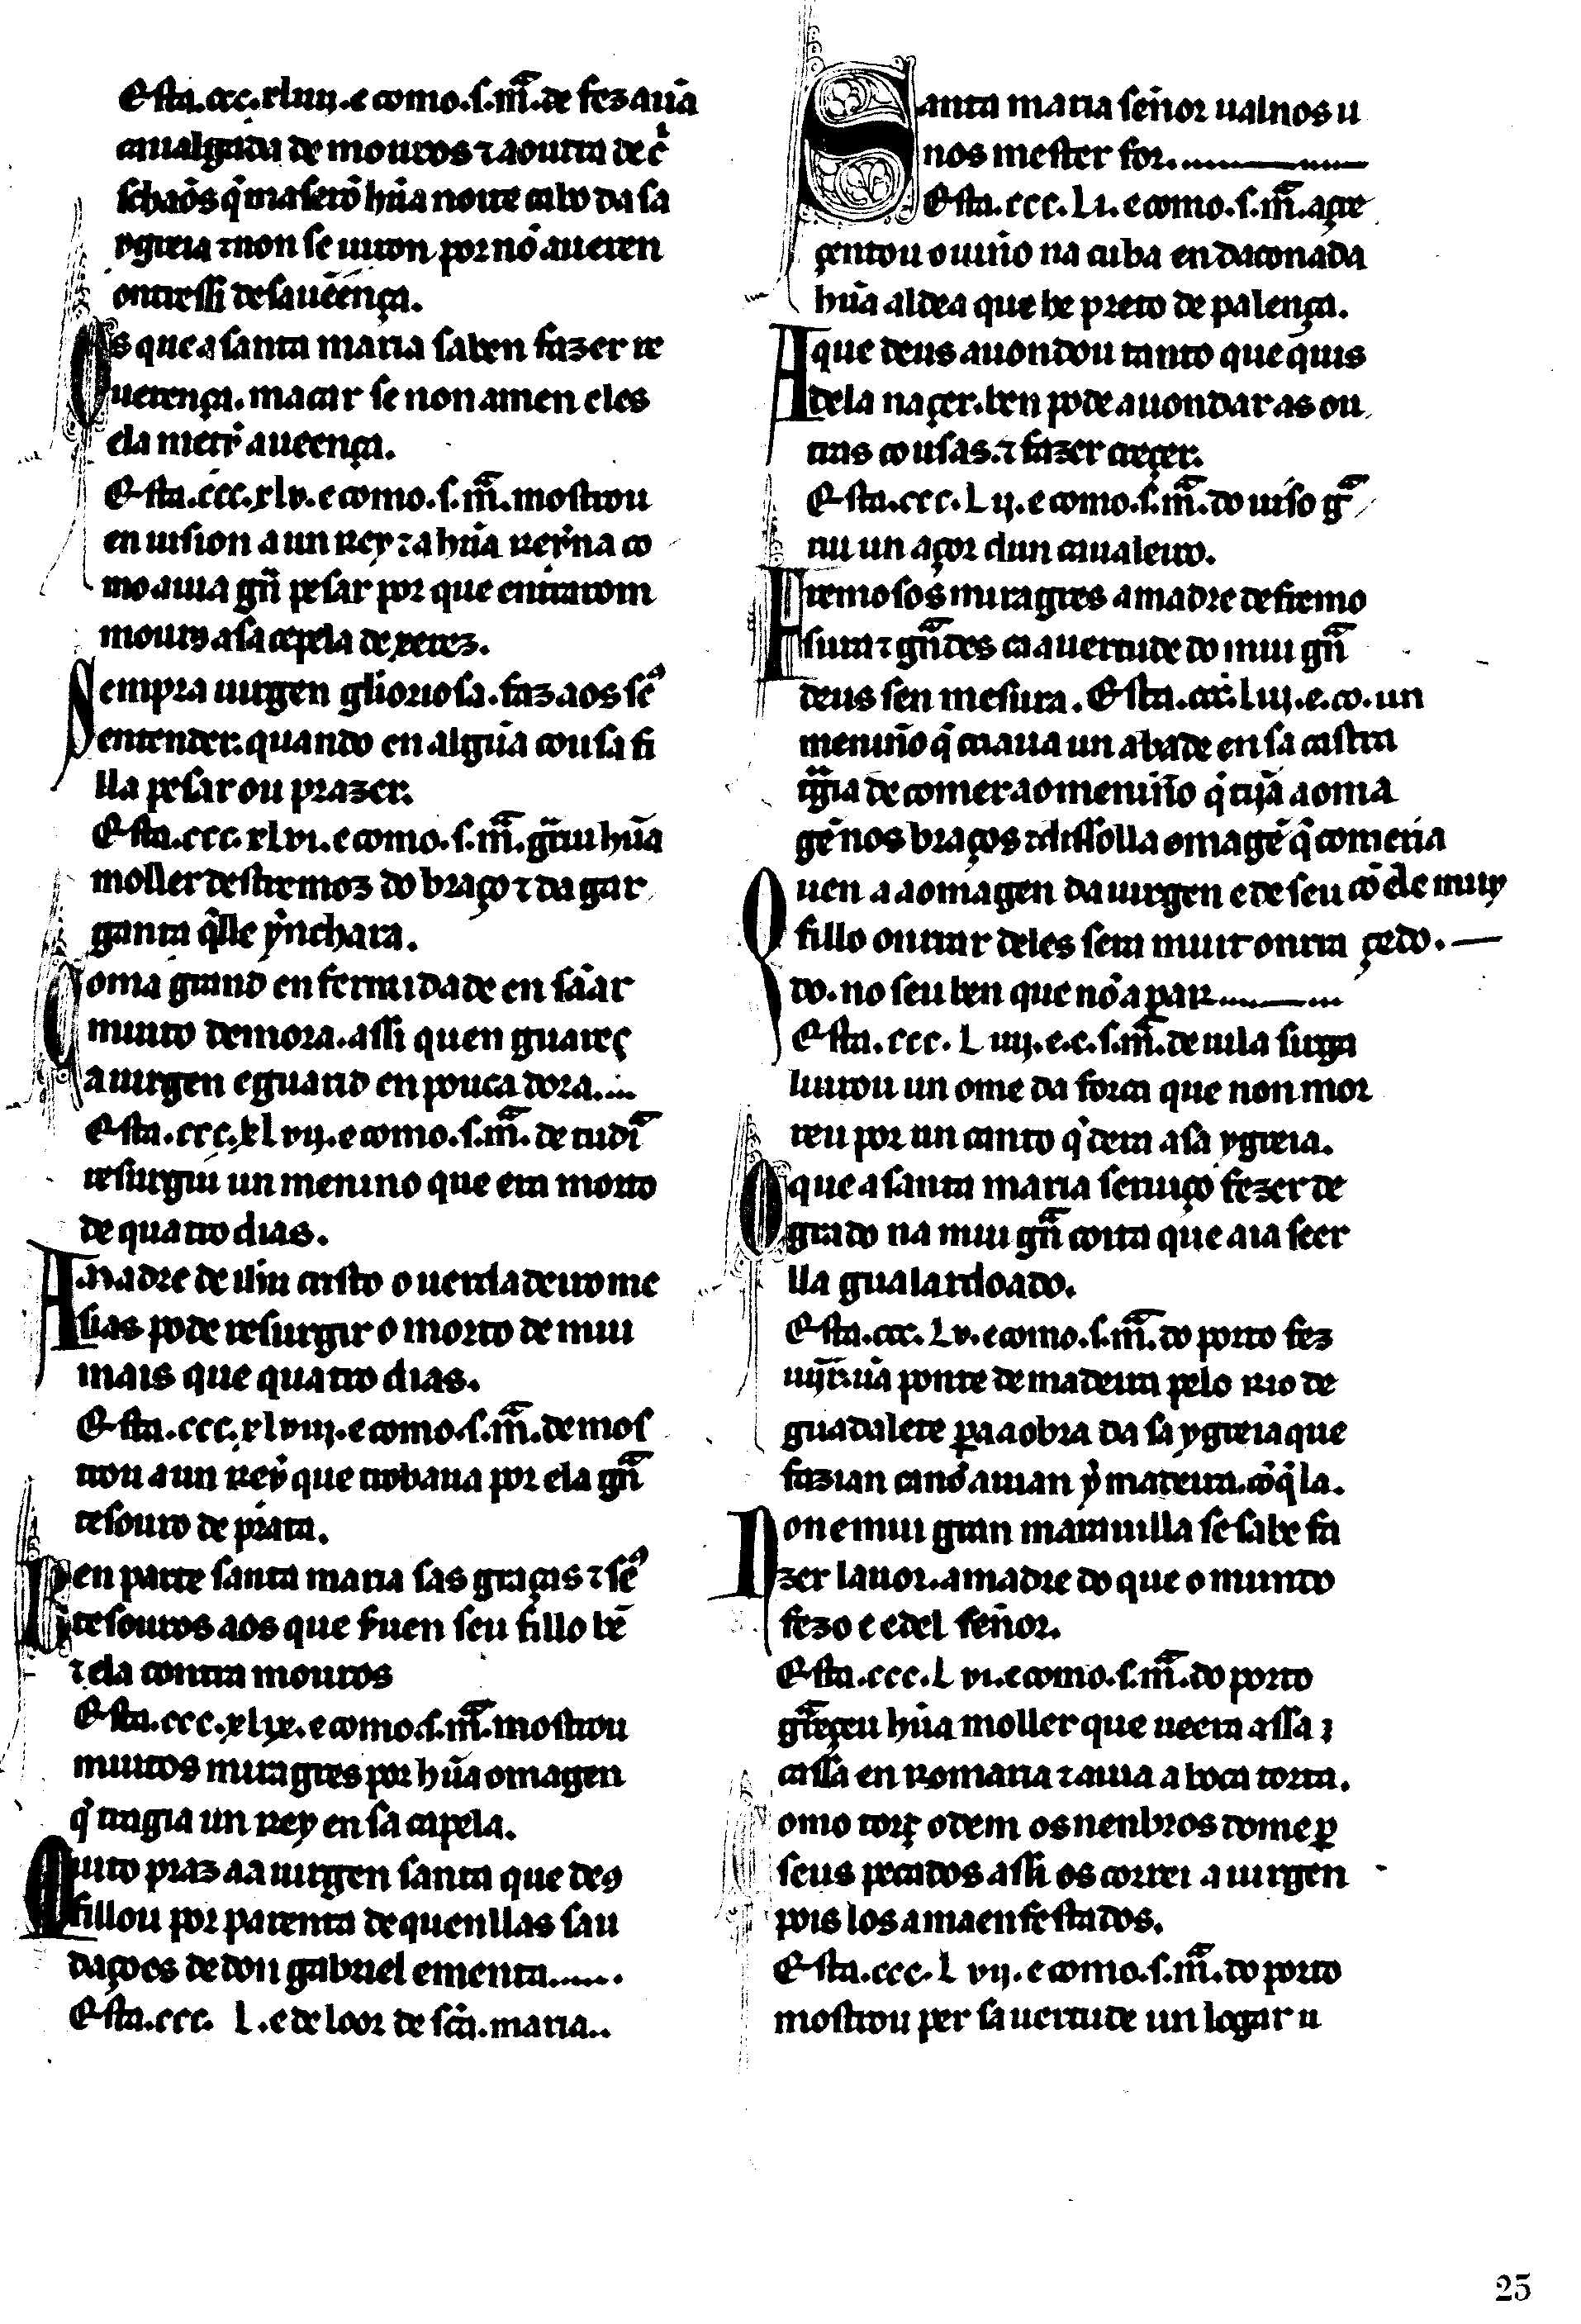 Esta .ccc. xliiii. e como .s. mã. de fez a ũa
caualgada de mouros ⁊ a outra de c̃
schãos q̃ iria serõ hũa noite cabo da sa
ygreia ⁊ non se uiron por nõ aueren
ontressi desauẽença.
Os que a santa maria saben fazer re
uerença. macar se non amen eles
ela met ̃ aueença.
Esta .ccc. xlv. e como .s. mã. mostrou
en uision a un rey ⁊ a hũa reỹna co
mo auia gñ pesar por que entrarom
mouros a sa capela de xerez.
Sempr a uirgen gloriosa. faz aos sẽ
entender. quando en algũa cousa fi
lla pesar ou prazer.
Esta .ccc. xlvi. e como .s. mã. guariu hũa
moller destremoz do braço ⁊ da gar
ganta q̃ lle ỹnchara.
Como a grand enfermidade en sãar
muito demora. assi quen guareç
a uirgen e guarid en pouca dora....
Esta .ccc. xlvii. e como .s. mã. de tudiã
resurgiu un menino que era morto
de quatro dias.
A Madre de ihu cristo o uerdadeiro me
sias pode resurgir o morto de mui
mais que quatro dias.
Esta .ccc. xlviii. e como .s. mã. demos
trou a un reỹ que trobaua por ela gñ
tesouro de prata.
Ben parte santa maria sas graças ⁊ sẽ
tesouros aos que s̃uen seu fillo bẽ
⁊ ela contra mouros
Esta .ccc. xlix. e como .s. mã. mostrou
muitos miragres por hũa omagen
q̃ tragia un rey en sa capela.
Muito praz aa uirgen santa que deꝰ
fillou por parenta de quen llas sau
daçoes de don gabriel ementa......
Esta .ccc. L. e de loor de scã. maria..
Santa maria señor ualnos u
nos mester for.
Esta .ccc. Li. e como .s. mã. acre
çentou o uiño na cuba en daconada
hũa aldea que he preto de palença.
A que deus auondou tanto que quis
dela naçer. ben pode auondar as ou
tras cousas. ⁊ fazer creçer.
Esta .ccc. Lii. e como .s. mã. do uiso gã
riu un açor dun caualeiro.
Fremosos miragres a madre de fremo
sura ⁊ gñdes ca a uertude do mui gñ
deus sen mesura. Esta .ccc. Liii. e. co. un
meniño q̃ criaua un abade en sa castra
tragia de comer ao meniño q̃ tijã a oma
gẽ nos braços ⁊ dissolla omagẽ q̃ comeria
Quen a a omagen da uirgen e de seu cõ ele muy
fillo onrrar deles sera muit onrra çedo.
do. no seu ben que nõ a par
Esta .ccc. Liiii. e. c. s. mã. de uila sirga
liurou un ome da forca que non mor
reu por un canto q̃ dera a sa ygreia.
O que a santa maria seruiço fezer de
grado na mui gñ coita que aia seer
lla gualardoado.
Esta .ccc. Lv. e como .s. mã. do porto fez
uijr ũa ponte de madeira pelo rio de
guadalete pa a obra da sa ygreia que
fazian ca nõ auian ỹ madeira. cõ q̃ la.
Non e mui gran marauilla se sabe fa
zer lauor. a madre do que o mundo
fezo e e del señor.
Esta .ccc. Lvi. e como .s. mã. do porto
gãreçeu hũa moller que ueera a ssa ⁊
cassa en romaria ⁊ auia a boca torta.
omo torç o dem os nenbros dome p̱
seus pecados assi os correi a uirgen
pois los a maenfestados.
Esta .ccc. Lvii. e como .s. mã. do porto
mostrou per sa uertude un logar u
25